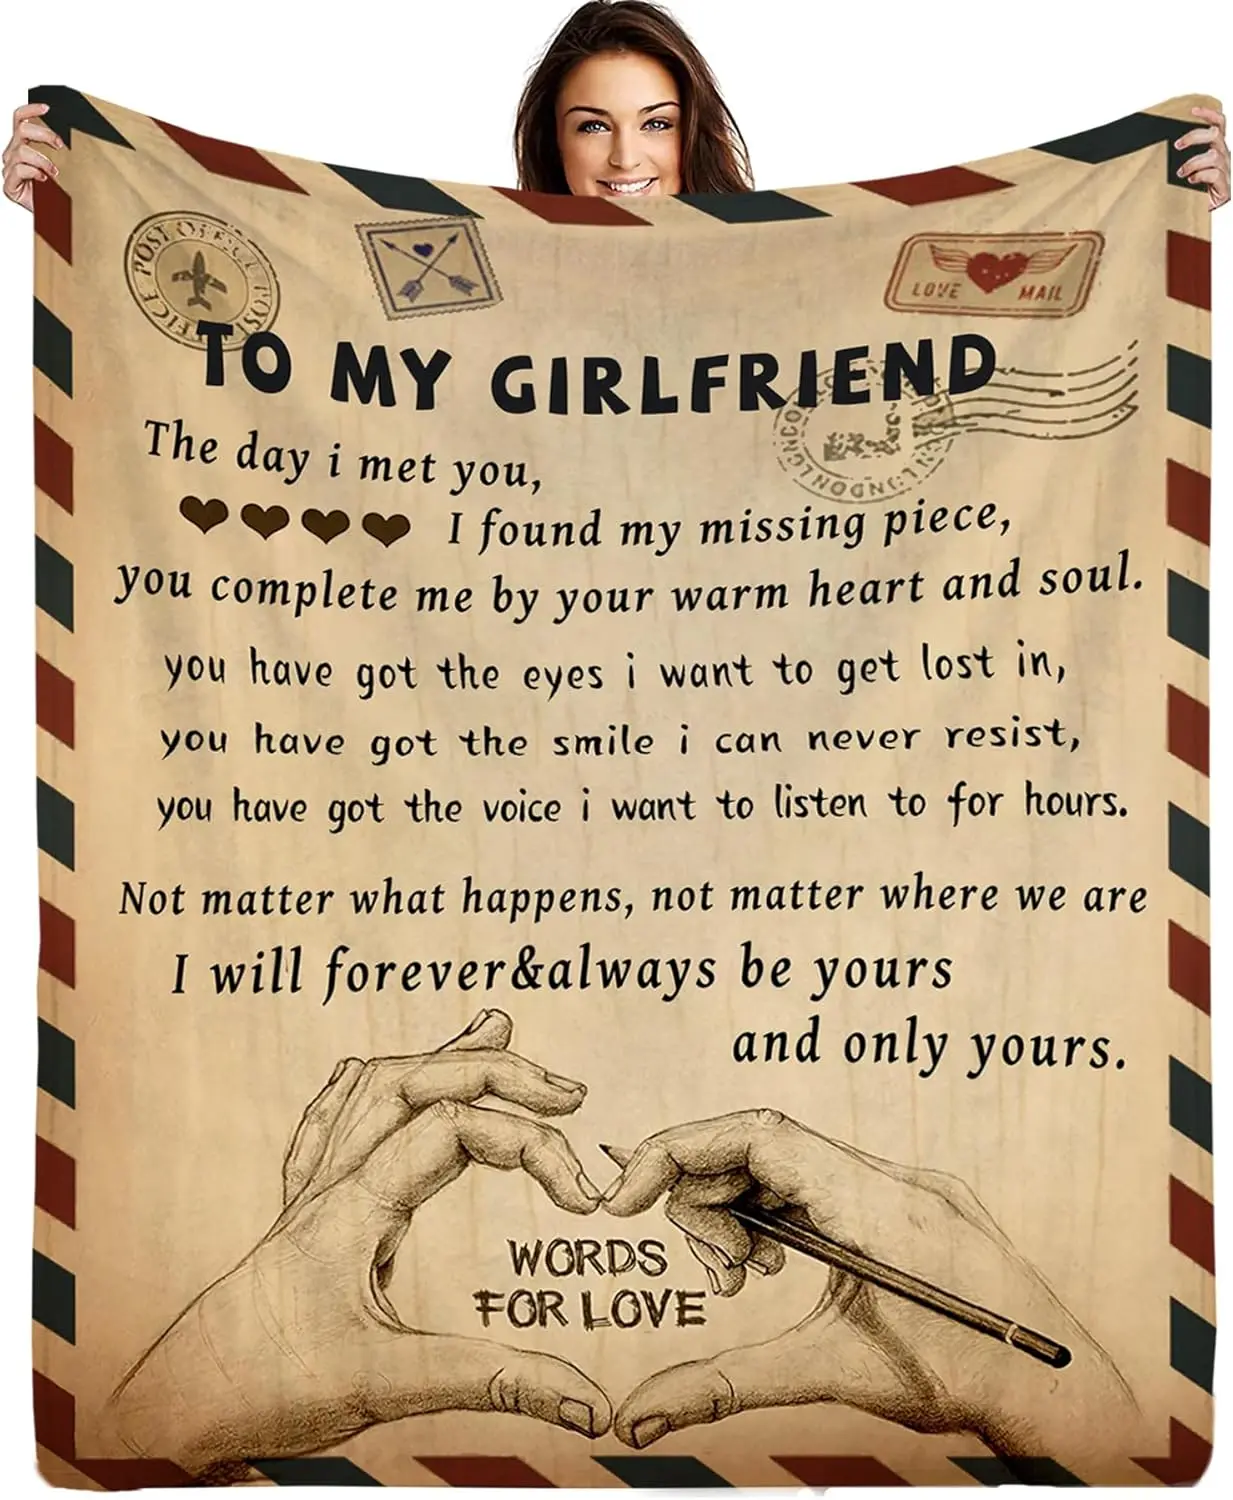 POST OFFICE POST OFFICE
LOVE MAIL
TO MY GIRLFRIEND
LONDON
The day i met you,
I found my missing piece,
you complete me by your warm heart and soul.
you have got the eyes i want to get lost in,
you have got the smile i can never resist,
you have got the voice i want to listen to for hours.
Not matter what happens, not matter where we are
I will forever&always be yours
and only yours.
WORDS
FOR LOVE